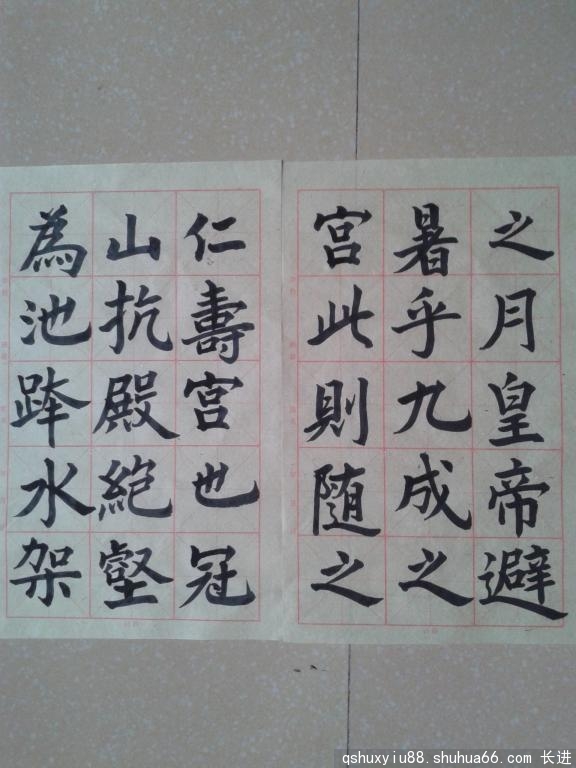 之月皇帝避
暑乎九成之
宫此則随之
仁壽宫也冠
山抗殿絶壑
為池跨水架
qshuxyiu88.shuhua66.com 长进